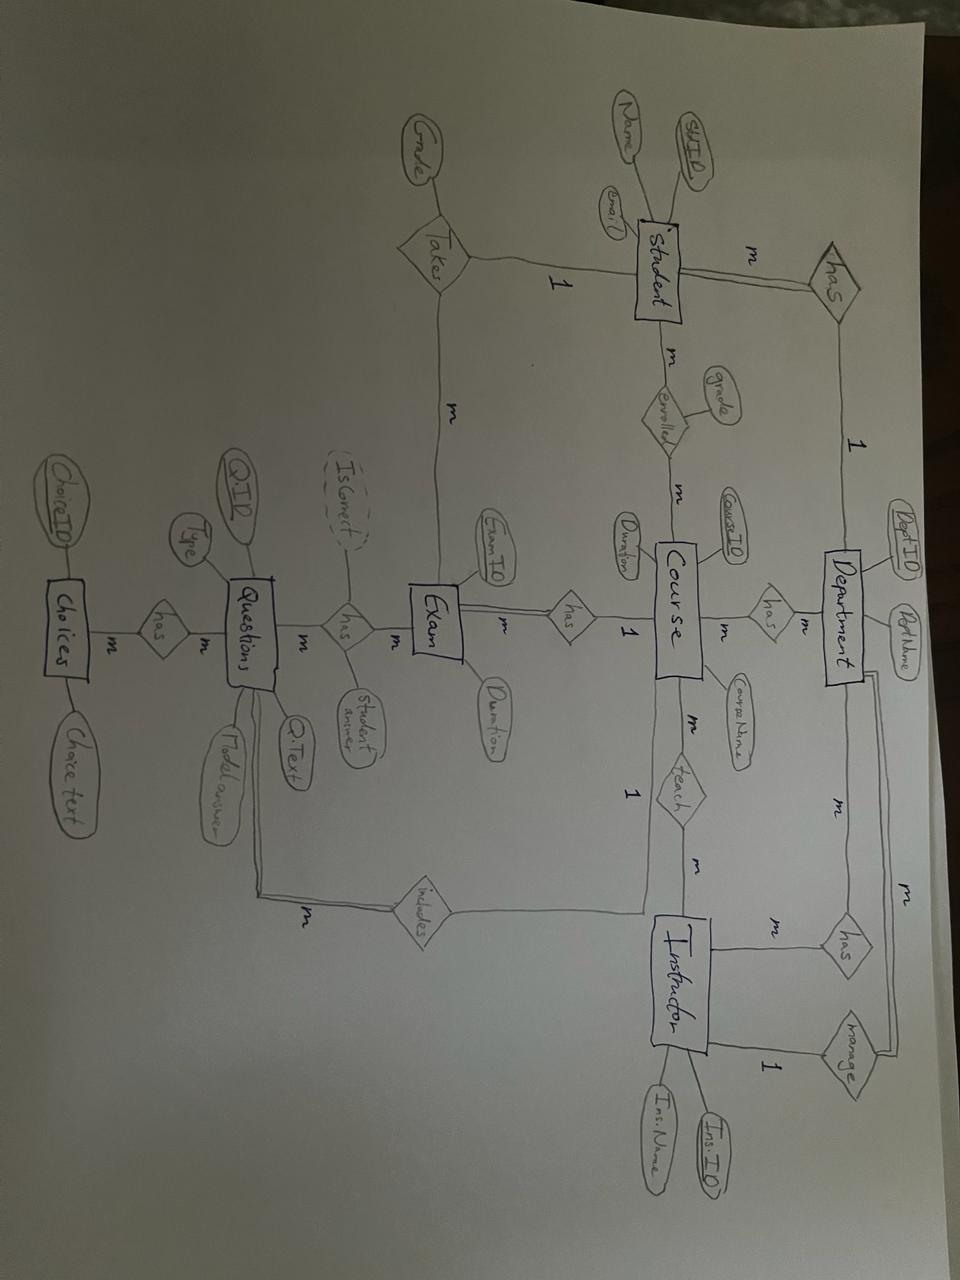 DeptID
DeptName
m
1
Department
has
manage
m
has
m
has
m
m
1
m
CourseID
CourseName
grade
Ins.ID
St.ID
m
enrolled
m
Course
m
teach
m
Instructor
Student
Ins.Name
Name
email
Duration
1
1
1
has
m
ExamID
Duration
m
Grade
Takes
Exam
includes
m
IsCorrect
has
Student
answer
m
m
Q.Text
Q.ID
Questions
Model answer
Type
m
has
m
ChoiceID
Choices
Choice text